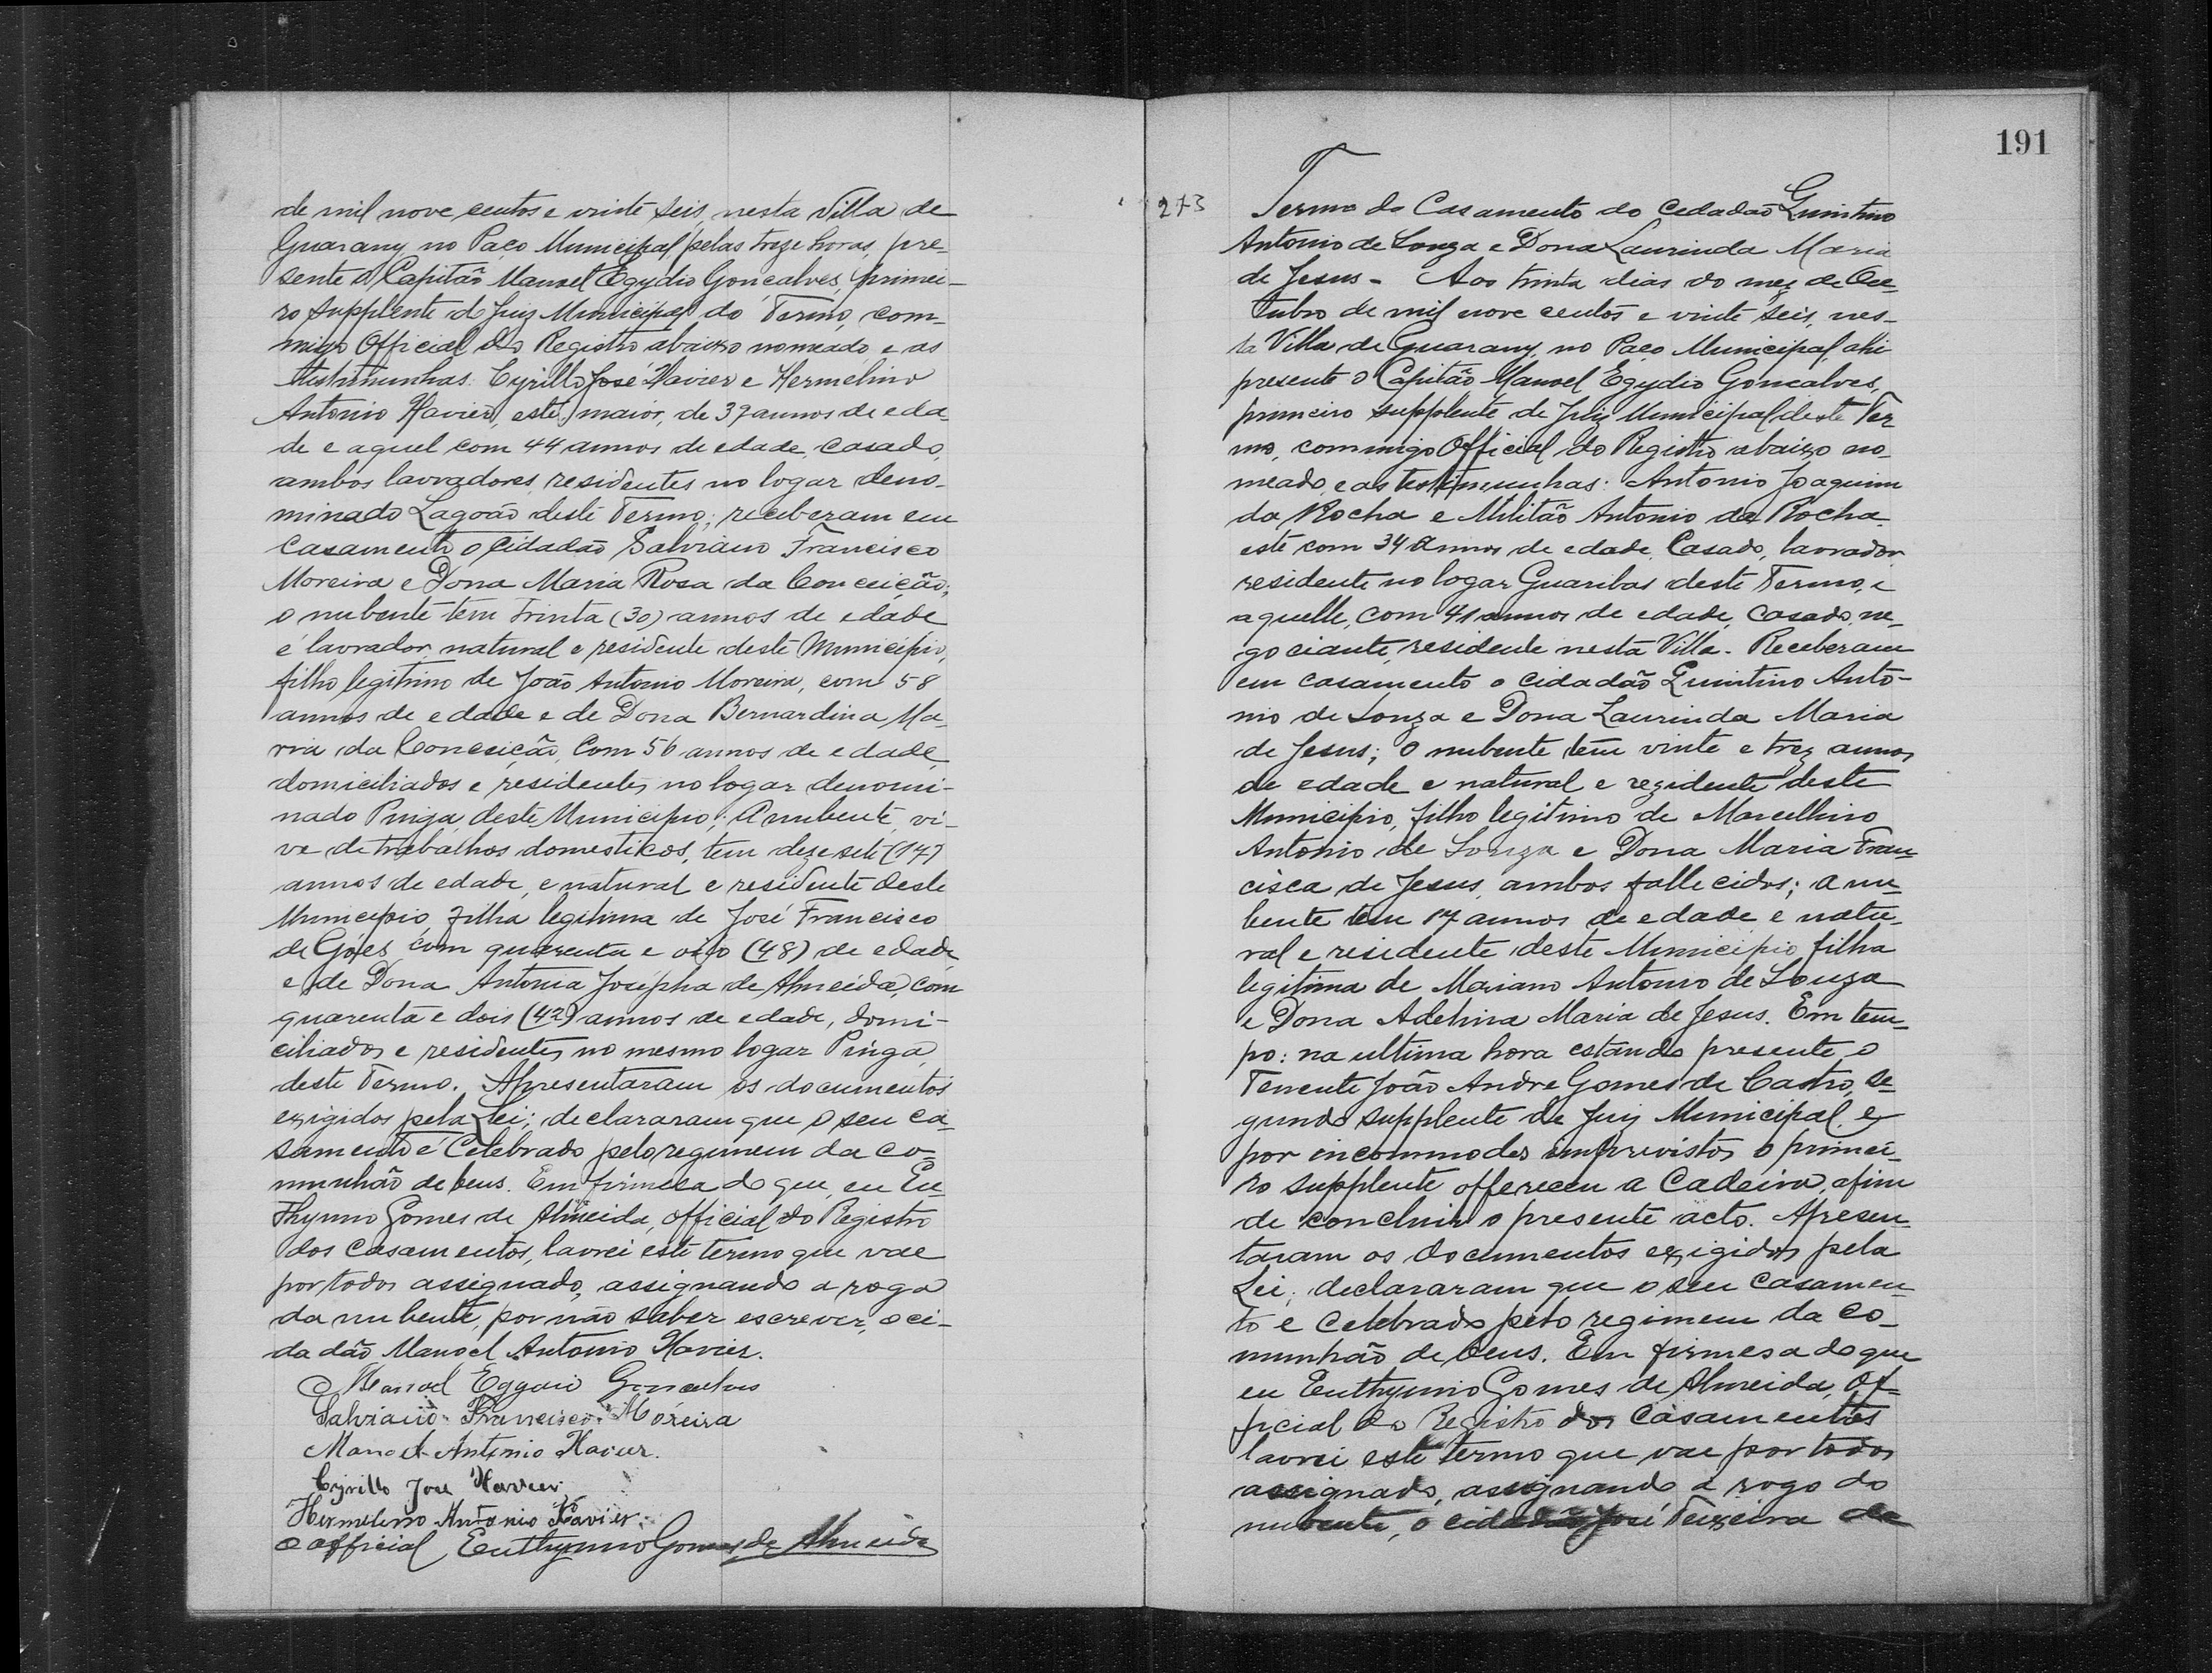 de mil nove centos e vinte seis, nesta Villa de
Guarany, no Paço Municipal, pelas treze horas, pre-
sente o Capitão Manoel Egydio Gonçalves, primei-
ro supplente do Juiz Municipal do Termo, com-
migo Official do Registro abaixo nomeado e as
testimunhas: Cyrillo José Xavier e Hermelino
Antonio Xavier, este, maior, de 37 annos de eda-
de e aquel com 44 annos de edade, casado,
ambos lavradores, residentes no logar deno-
minado Lagoão deste Termo; receberam em
casamento o cidadão Salviano Francisco
Moreira e Dona Maria Rosa da Conceição;
o nubente tem trinta (30) annos de edade
é lavrador, natural e residente deste Municipio,
filho legitimo de João Antonio Moreira, com 58
annos de edade e de Dona Bernardina Ma-
ria da Conceição, com 56 annos de edade,
domiciliados e residentes no logar denomi-
nado Pinga, deste Municipio; A nubente, vi-
ve de trabalhos domesticos, tem dezesete (17)
annos de edade, e natural e residente deste
Municipio, filha legitima de José Francisco
de Góes, com quarenta e oito (48) de edade
e de Dona Antonia Josépha de Almeida, com
quarenta e dois (42) annos de edade, domi-
ciliados e residentes no mesmo logar Pinga,
deste Termo. Apresentaram os documentos
exigidos pela Lei; declararam que o seu ca-
samento é Celebrado pelo regimem da co-
munhão de bens. Em firmesa do que, eu Eu-
thymio Gomes de Almeida, official do Registro
dos Casamentos, lavrei este termo que vae
por todos assignado, assignando a rogo
da nubente, por não saber escrever, o ci-
dadão Manoel Antonio Xavier.
Manoel Egydio Goncalves
Salviano Francisco Moreira
Manoel Antonio Xavier.
Cyrillo José Xavier
Hermelino Antonio Xavier.
O official Euthymio Gomes de Almeida
191
273
Termo do Casamento do Cedadão Quintino
Antonio de Souza e Dona Laurinda Maria
de Jesus - Aos trinta dias do mez de Ou-
tubro de mil nove centos e vinte seis, nes-
ta Villa de Guarany, no Paço Municipal, ahi
presente o Capitão Manoel Egydio Goncalves,
primeiro supplente de Juiz Municipal deste Ter
mo, commigo Official do Registro abaixo no-
meado, e as testimunhas: Antonio Joaquim
da Rocha e Militão Antonio da Rocha,
este com 34 annos de edade, Casado, lavrador
residente no logar Guaribas deste Termo, e
aquelle, com 41 annos de edade, casado, ne-
gociante, residente nesta Villa. Receberam
em casamento o cidadão Quintino Anto-
nio de Souza e Dona Laurinda Maria
de Jesus; O nubente tem vinte e trez annos
de edade e natural e rezidente deste
Municipio, filho legitimo de Marcellino
Antonio de Souza e Dona Maria Fran-
cisca de Jesus, ambos fallecidos; a nu-
bente tem 17 annos de edade e natu-
ral e residente deste Municipio filha
legitima de Mariano Antonio de Souza
e Dona Adelina Maria de Jesus. Em tem-
po: na ultima hora estando presente o
Tenente João Andre Gomes de Castro, se-
gundo supplente de Juiz Municipal, e
por incommodos imprevistos o primei-
ro supplente offereceu a Cadeira, afim
de concluir o presente acto. Apresen-
taram os documentos exigidos pela
Lei; declararam que o seu casamen-
to e celebrado pelo regimem da co-
munhão de bens. Em firmesa do que
eu Euthymio Gomes de Almeida, Of-
ficial do Registro dos Casamentos
lavrei este termo que vae por todos
assignado, assignando a rogo do
nubente, o cidadão José Teixeira de